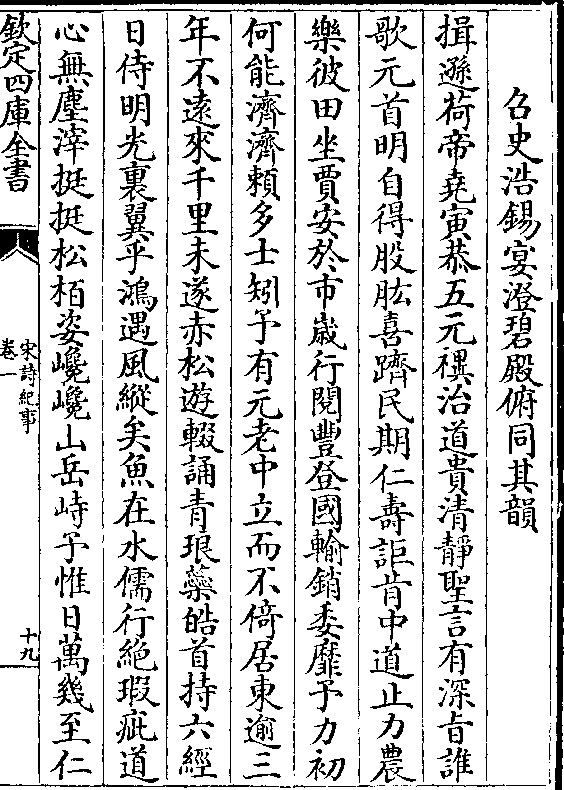 召史浩錫宴澄碧殿俯同其韻
揖遜荷帝堯寅恭五元禩治道貴清靜聖言有深旨誰
歌元首明自得股肱喜躋民期仁壽詎肯中道止力農
樂彼田坐賈安於市歲行閱豐登國輸銷委靡予力初
何能濟濟頼多士矧予有元老中立而不倚居東逾三
年不遠來千里未遂赤松遊輟誦青琅蘂皓首持六經
日侍明光裏翼乎鴻遇風縱矣魚在水儒行絶瑕疵道
心無塵滓挺挺松栢姿巉巉山岳峙予惟日萬幾至仁
欽定四庫全書
宋詩紀事
卷一
十九